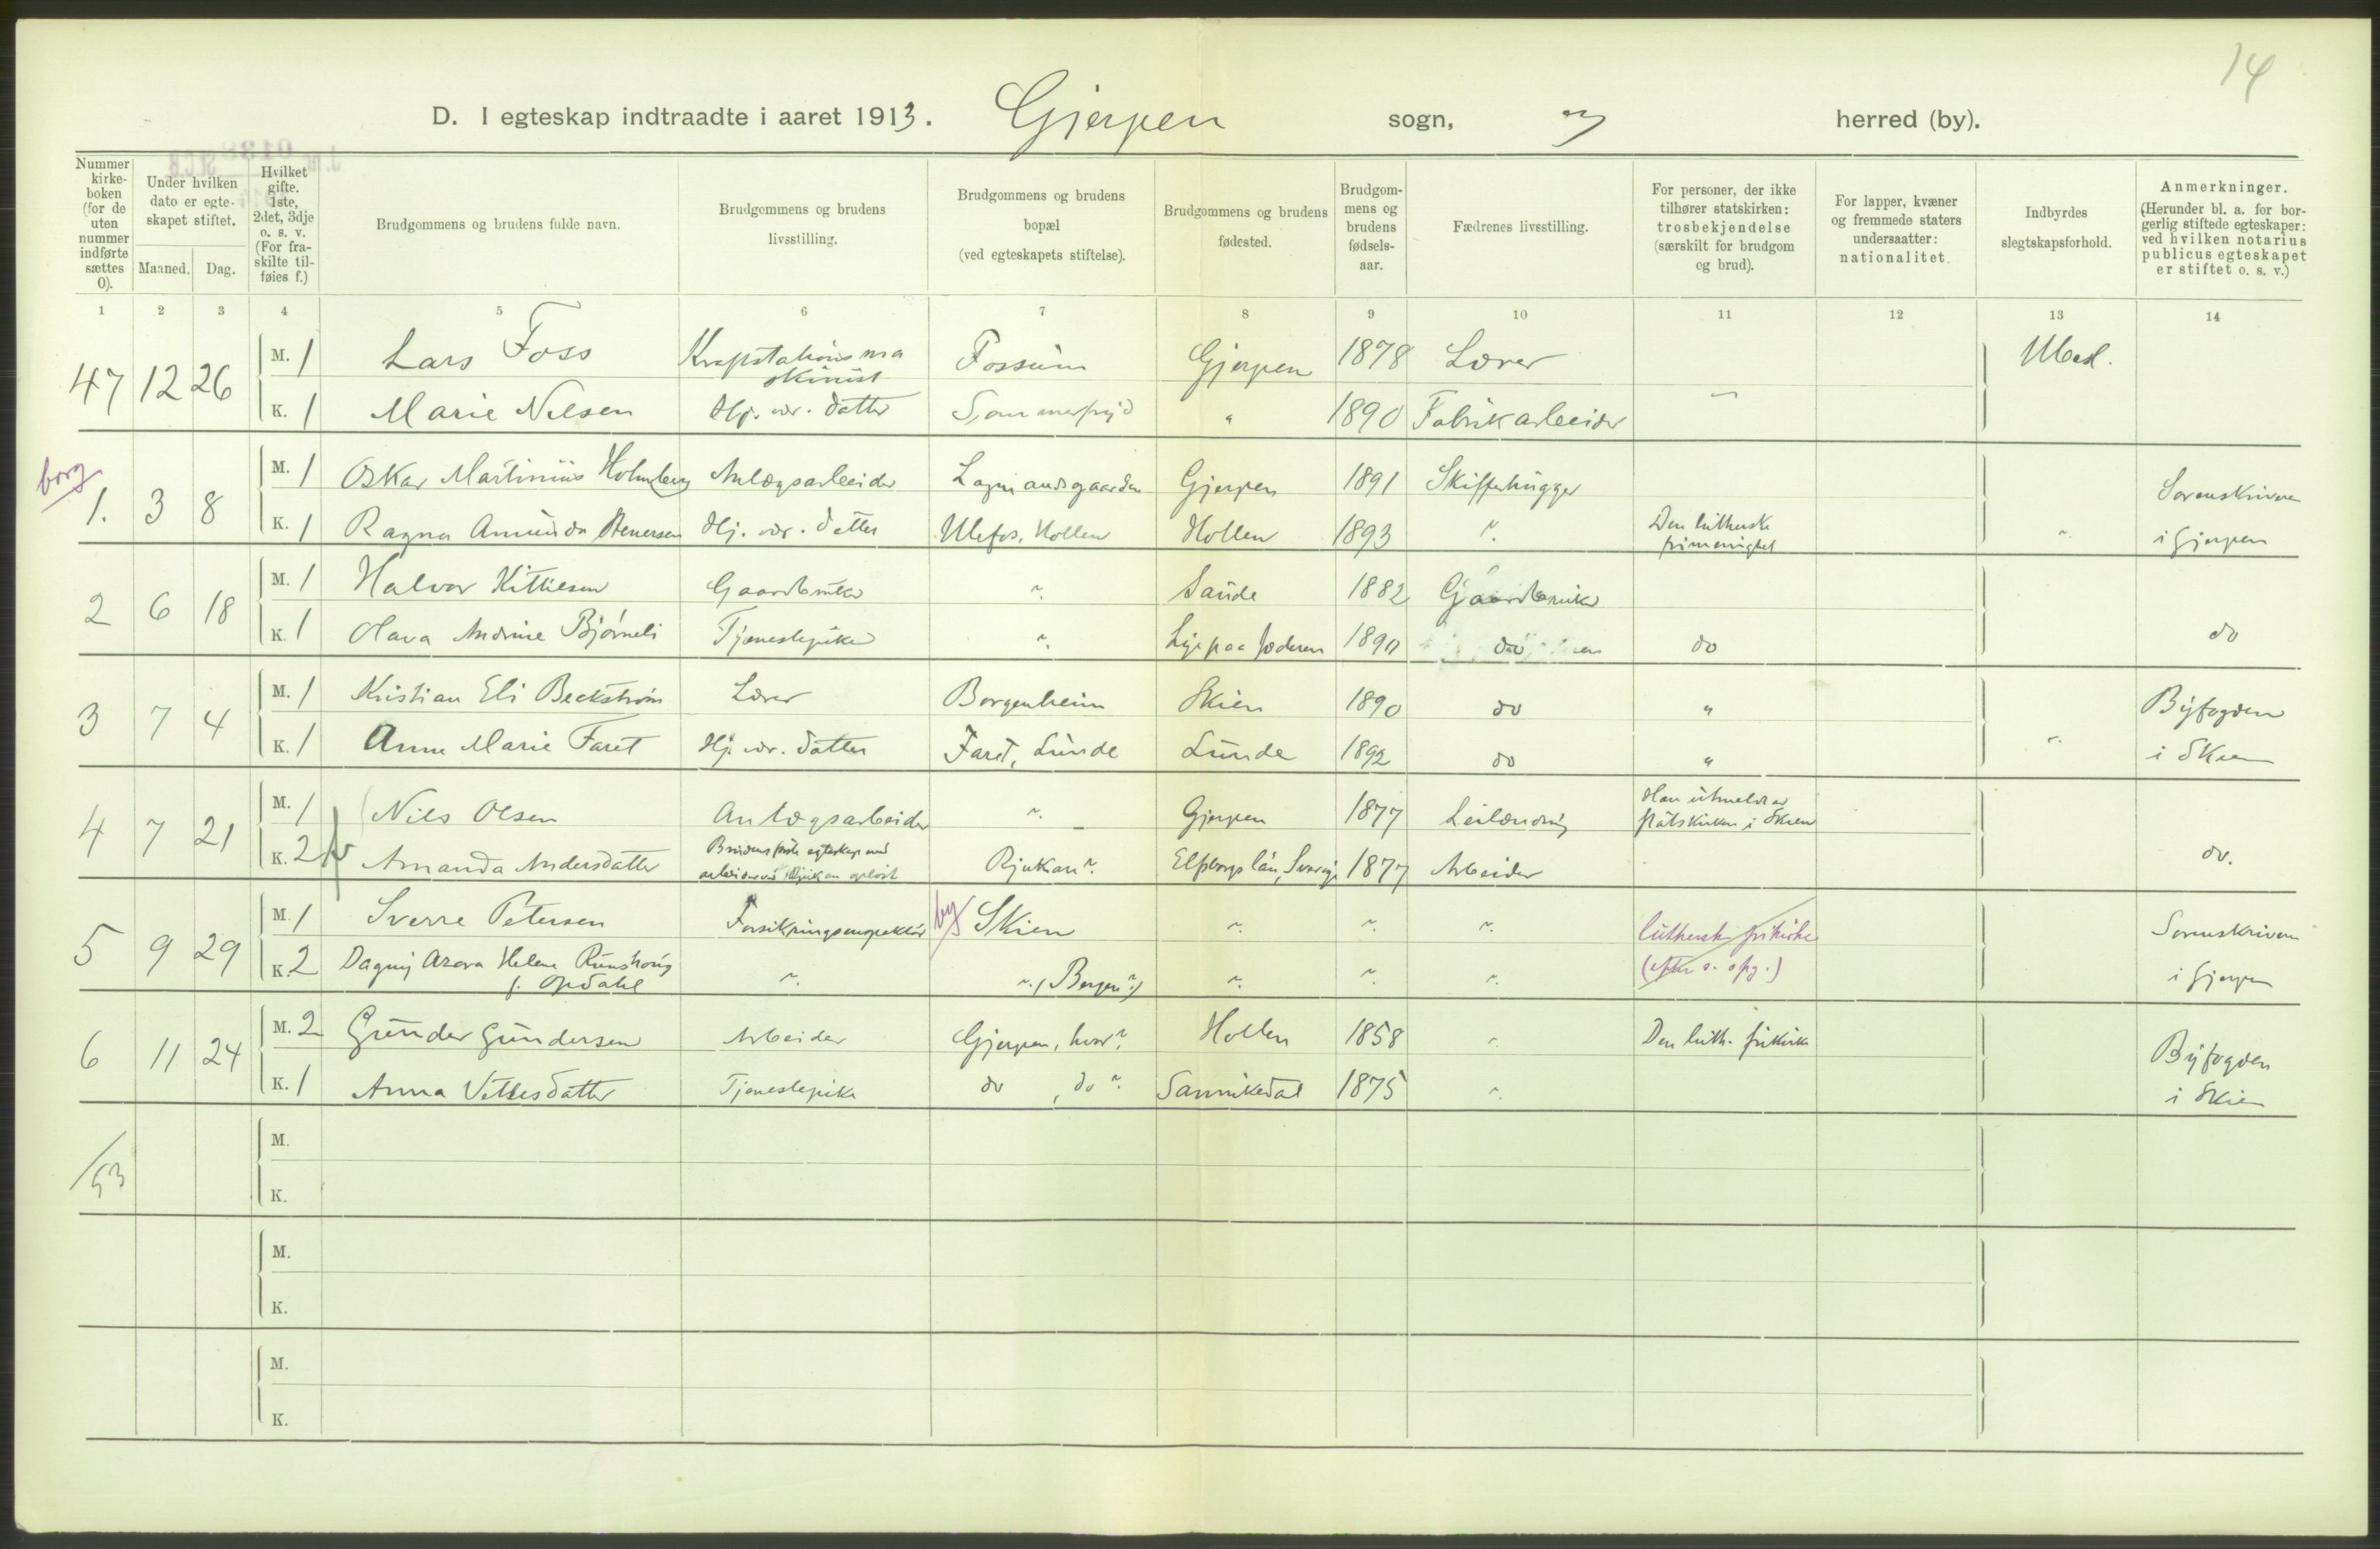 14
D. I egteskap indtraadte i aaret 1913. Gjerpen sogn, herred (by).
Nummer kirke-boken (for de uten nummer indførte sættes 0).
Under hvilken dato er egte-skapet stiftet.
Maaned. Dag.
Hvilket gifte. 1ste, 2det, 3dje o. s. v. (For fra-skilte til-føies f.)
Brudgommens og brudens fulde navn.
Brudgommens og brudens livsstilling.
Brudgommens og brudens bopæl (ved egteskapets stiftelse).
Brudgommens og brudens fødested.
Brudgom-mens og brudens fødsels-aar.
Fædrenes livsstilling.
For personer, der ikke tilhører statskirken: trosbekjendelse (særskilt for brudgom og brud).
For lapper, kvæner og fremmede staters undersaatter: nationalitet.
Indbyrdes slegtskapsforhold.
Anmerkninger. (Herunder bl. a. for bor-gerlig stiftede egteskaper: ved hvilken notarius publicus egteskapet er stiftet o. s. v.)
1 2 3 4 5 6 7 8 9 10 11 12 13 14
47 12 26 M. 1 Lars Foss Kraftstationsmaskinist Fossum Gjerpen 1878 Lærer Ubesl.
K. 1 Marie Nilsen Hj. vær. datter Sommerfryd " 1890 Fabrikarbeider
borg
1. 3 8 M. 1 Oskar Martinius Holmberg Anlægsarbeider Lagmandsgaarden Gjerpen 1891 Skifferhugger Sorenskriveren
K. 1 Ragna Amunda Stenersen Hj. vær. datter Ulefos, Hollen Hollen 1893 ~. Den lutherske frimenighet ~. i Gjerpen
2 6 18 M. 1 Halvor Kittilsen Gaardbruker ~. Saude 1882 Gaardbruker
K. 1 Olava Andrine Bjørneli Tjenestepike ~. 1890 do do do
3 7 4 M. 1 Kristian Eli Beckstrøm Lærer Borgenheim Skien 1890 do " Byfogden
K. 1 Anne Marie Faret Hj. vær. datter Faret, Lunde Lunde 1892 do " ~. i Skien
4 7 21 M. 1 Nils Olsen Anlægsarbeider ~. Gjerpen 1877 Leilænding Han utmeldt av statskirken i Skien
K. 2 Amanda Andersdatter Brudens første egteskap med arbeider Rjukan opløst Rjukan ~. Elfsborgs län, Sverige 1877 Arbeider do.
5 9 29 M. 1 Sverre Petersen Forsikringsinspektør by Skien ~. ~. ~. luthersk frikirke Sorenskriveren
K. 2 Dagny Helene f. Opdahl ~. ~. (Bergen ~.) ~. ~. ~. (efter s. opg.) i Gjerpen
6 11 24 M. 2 Gunder Gundersen Arbeider Gjerpen, hvor ~. Hollen 1858 ~. Den luth. frikirke Byfogden
K. 1 Anna Vetlesdatter Tjenestepike do , do ~. Sannikedal 1875 ~. i Skien
/53 M.
K.
M.
K.
M.
K.